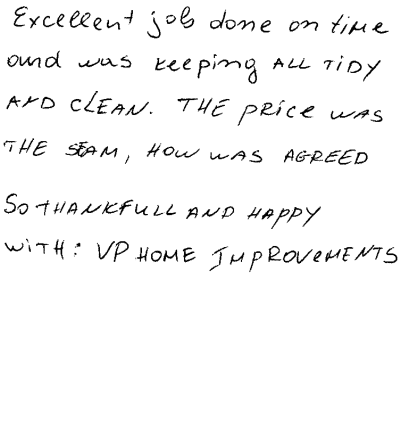 Excellent job done on time
and was keeping ALL TiDY
AND CLEAN. THE PRice WAS
THE SEAM, HOW WAS AGREED
SO THANKFULL AND HAPPY
WITH: VP HOME IMPROVEMENTS